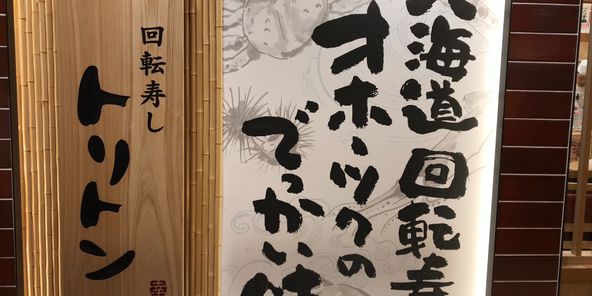 北海道回転寿
オホーツクの
でっかい味
回転寿し
トリトン